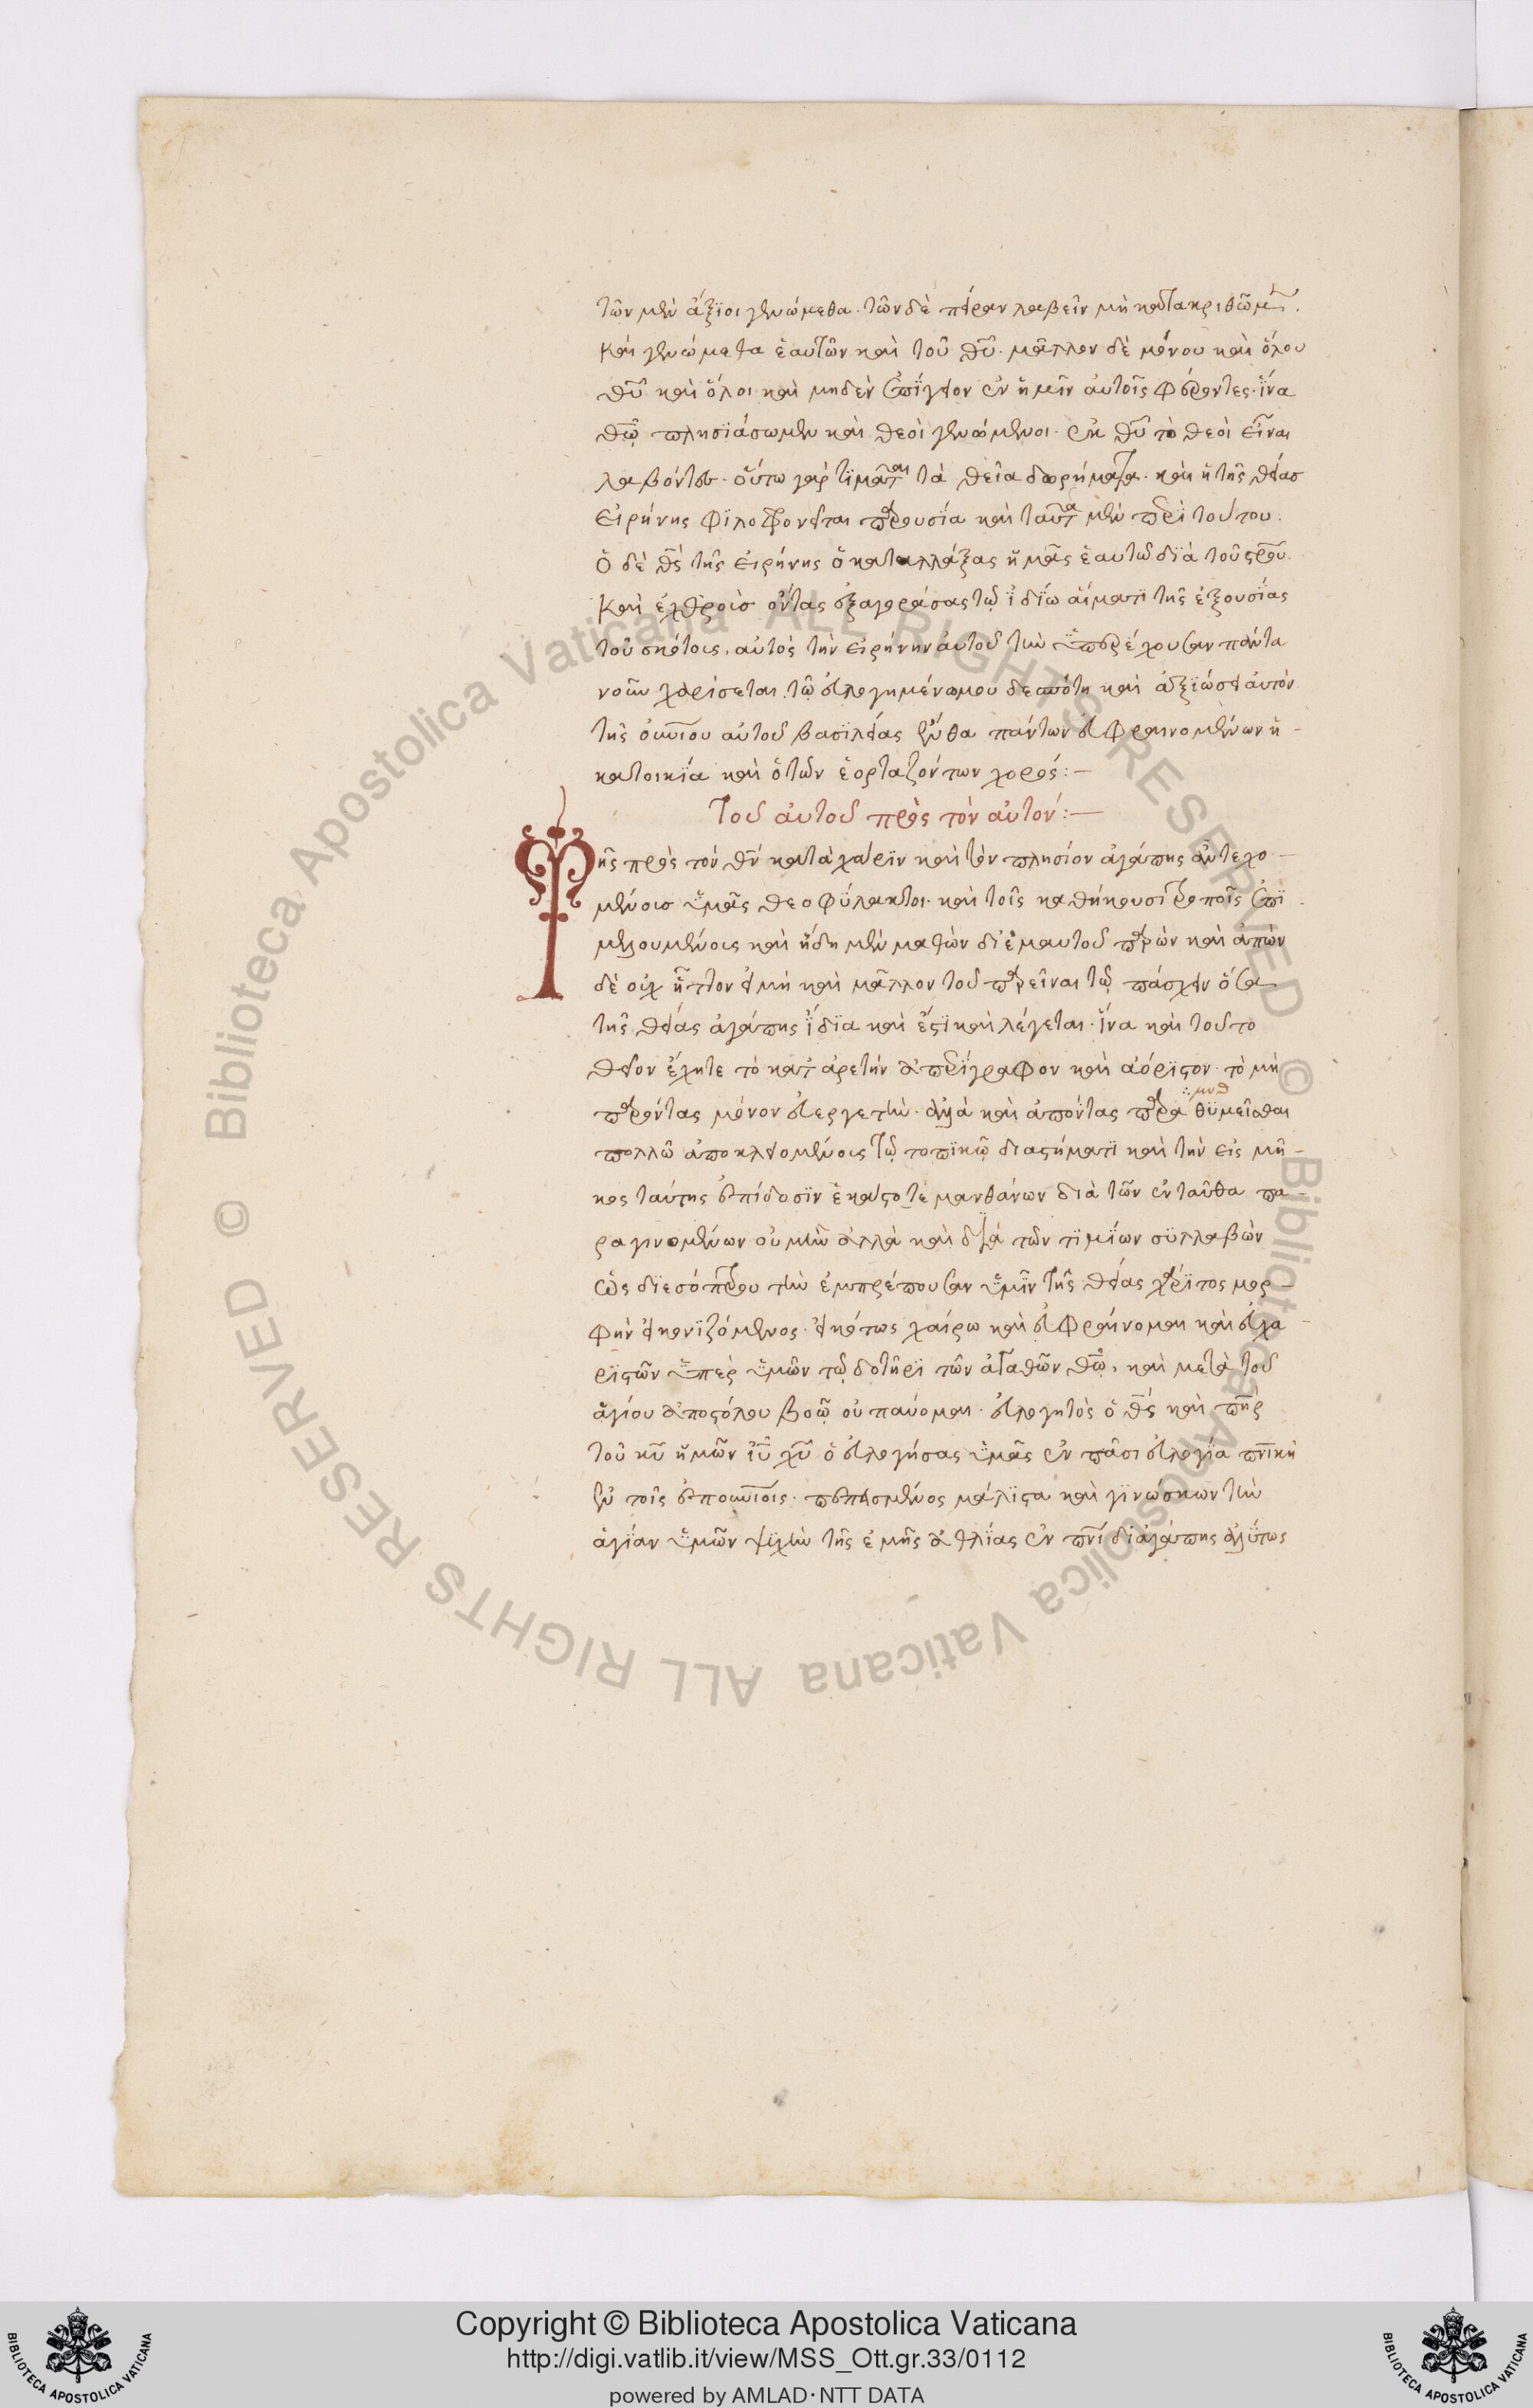 τῶν μὲν ἄξιοι γενώμεθα· τῶν δὲ πεῖραν λαβεῖν μὴ κατακριθῶμεν.
Καὶ γενώμεθα ἑαυτῶν καὶ τοῦ θυ· μᾶλλον δὲ μόνου καὶ ὅλου
θυ καὶ ὅλοι καὶ μηδὲν ἐπίγειον ἐν ἡμῖν αὐτοῖς φέροντες· ἵνα
θῶ πλησϊάσωμεν καὶ θεοὶ γενώμενοι· ἐκ θυ τὸ θεοὶ εἶναι
λαβόντες· οὕτω γάρ τιμᾶται τὰ θεῖα δωρήματα· καὶ ἡ τῆς θείας
εἰρήνης φϊλοφρονεῖται παρουσία καὶ ταῦτα μὲν περὶ τούτου.
ὁ δὲ θς τῆς εἰρήνης ὁ καταλλάξας ἡμᾶς ἑαυτῶ διὰ τοῦ σρου.
Καὶ ἐχθροὺς ὄντας ἐξαγοράσας τῷ ἰδίω αἵματι τῆς ἐξουσίας
τοῦ σκότους, αὐτὸς τὴν εἰρήνην αὐτοῦ τὴν ὑπερέχουσαν πάντα
νοῦν χαρίσεται τῶ εὐλογημένω μου δεσπότη καὶ ἀξιώσει αὐτὸν
τῆς οὐνίου αὐτοῦ βασιλείας ἔνθα πάντων εὐφραινομένων ἡ
κατοικία καὶ ὁ τῶν ἑορταζόντων χορός:—
Τοῦ αὐτοῦ πρὸς τὸν αὐτόν:—
Τῆς πρὸς τὸν θν κατὰ χάριν καὶ τὸν πλησίον ἀγάπης ἀντεχο-
μένους ὑμᾶς θεοφύλακτοι· καὶ τοῖς καθήκουσι τρόποις ἐπι
μελουμένους καὶ ἤδη μὲν μαθὼν δι' ἐμαυτοῦ παρὼν καὶ ἀπὼν
δὲ οὐχ ἧττον εἰ μὴ καὶ μᾶλλον τοῦ παρεῖναι τῷ πάσχειν ὅσα
τῆς θείας ἀγάπης ἴδια καὶ ἔστι καὶ λέγεται· ἵνα καὶ τοῦτο
θεῖον ἔχητε τὸ κατ' ἀρετὴν ἀπερίγραφον καὶ ἀόριστον· τὸ μὴ
παρόντας μόνον εὐεργετεῖν· ἀλλὰ καὶ ἀπόντας παρα θϋμεῖσθαι
πολλῶ ἀποκλειομένους τῷ τοπϊκῷ διαστήματι καὶ τὴν εἰς μῆ-
κος ταύτης ἐπίδοσιν ἑκάστοτε μανθάνων διὰ τῶν ἐνταῦθα πα-
ραγινομένων οὐ μὴν ἀλλὰ καὶ διὰ τῶν τιμίων συλλαβῶν
ὡς δϊεσόπτρου τὴν ἐμπρέπουσαν ὑμῖν τῆς θείας χάριτος μορ-
φὴν εἰκονϊζόμενος· εἰκότως χαίρω καὶ εὐφραίνομαι καὶ εὐχα-
ριστῶν ὑπὲρ ὑμῶν τῷ δοτῆρι τῶν ἀγαθῶν θῶ, καὶ μετὰ τοῦ
ἁγίου ἀποστόλου βοῶ οὐ παύομαι· εὐλογητὸς ὁ θς καὶ πηρ
τοῦ κυ ἡμῶν ιυ χυ ὁ εὐλογήσας ὑμᾶς ἐν πάσι εὐλογία πνικῆ
ἐν τοῖς ἐπουνίοις· πεπεισμένος μάλιστα καὶ γινώσκων τὴν
ἁγίαν ὑμῶν ψϋχὴν τῆς ἐμῆς ἀθλίας ἐν πνι δι' ἀγάπης ἀλύτως
© Biblioteca Apostolica Vaticana ALL RIGHTS RESERVED
© Biblioteca Apostolica Vaticana ALL RIGHTS RESERVED
Copyright © Biblioteca Apostolica Vaticana
http://digi.vatlib.it/view/MSS_Ott.gr.33/0112
powered by AMLAD·NTT DATA
BIBLIOTECA APOSTOLICA VATICANA
BIBLIOTECA APOSTOLICA VATICANA